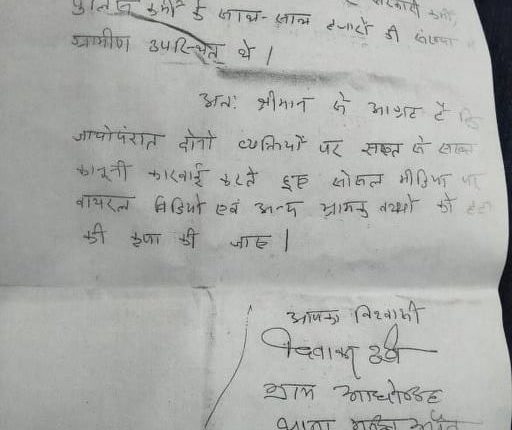 पुलिस कर्मी के साथ-साथ हजारों की संख्या
ग्रामीण उपस्थित थे।
अतः श्रीमान से आग्रह है कि
जाचोपरांत दोनो व्यक्तियों पर सख्त से सख्त
कानूनी कारवाई करते हुए सोसल मीडिया पर
वायरल विडियो एवं अन्य भ्रामक तथ्यों को
की कृपा की जाए।
आपका विश्वासी
ग्राम
थाना